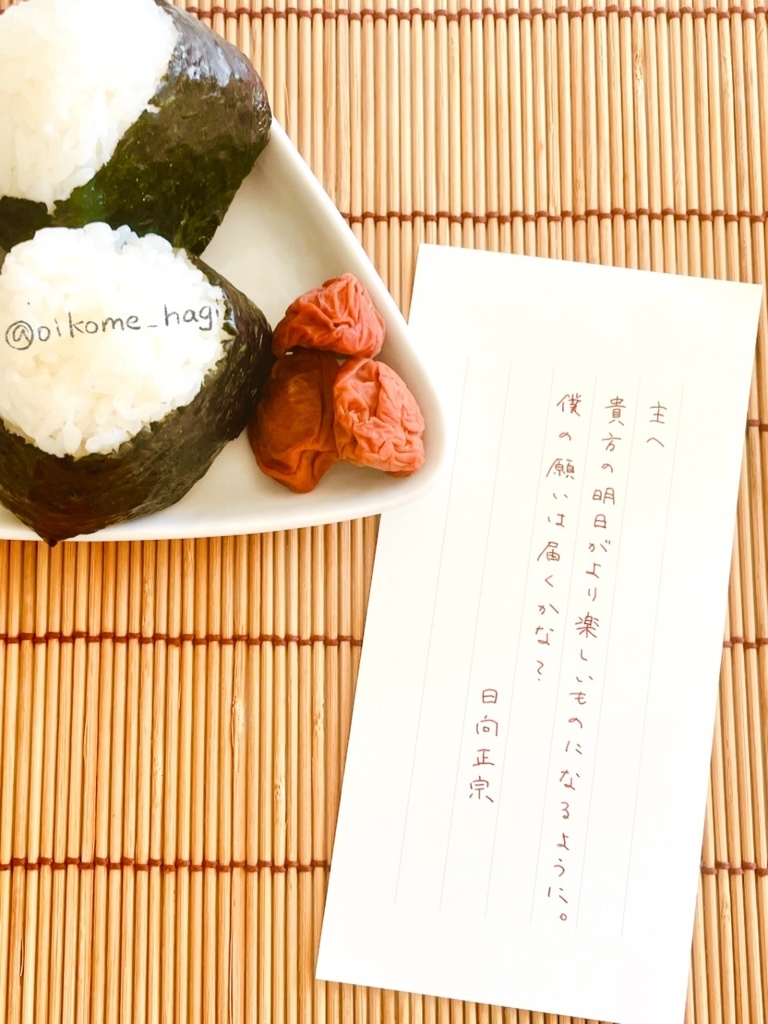 @oikome_hagi
主へ
貴方の明日がより楽しいものになるように。
僕の願いは届くかな？
日向正宗